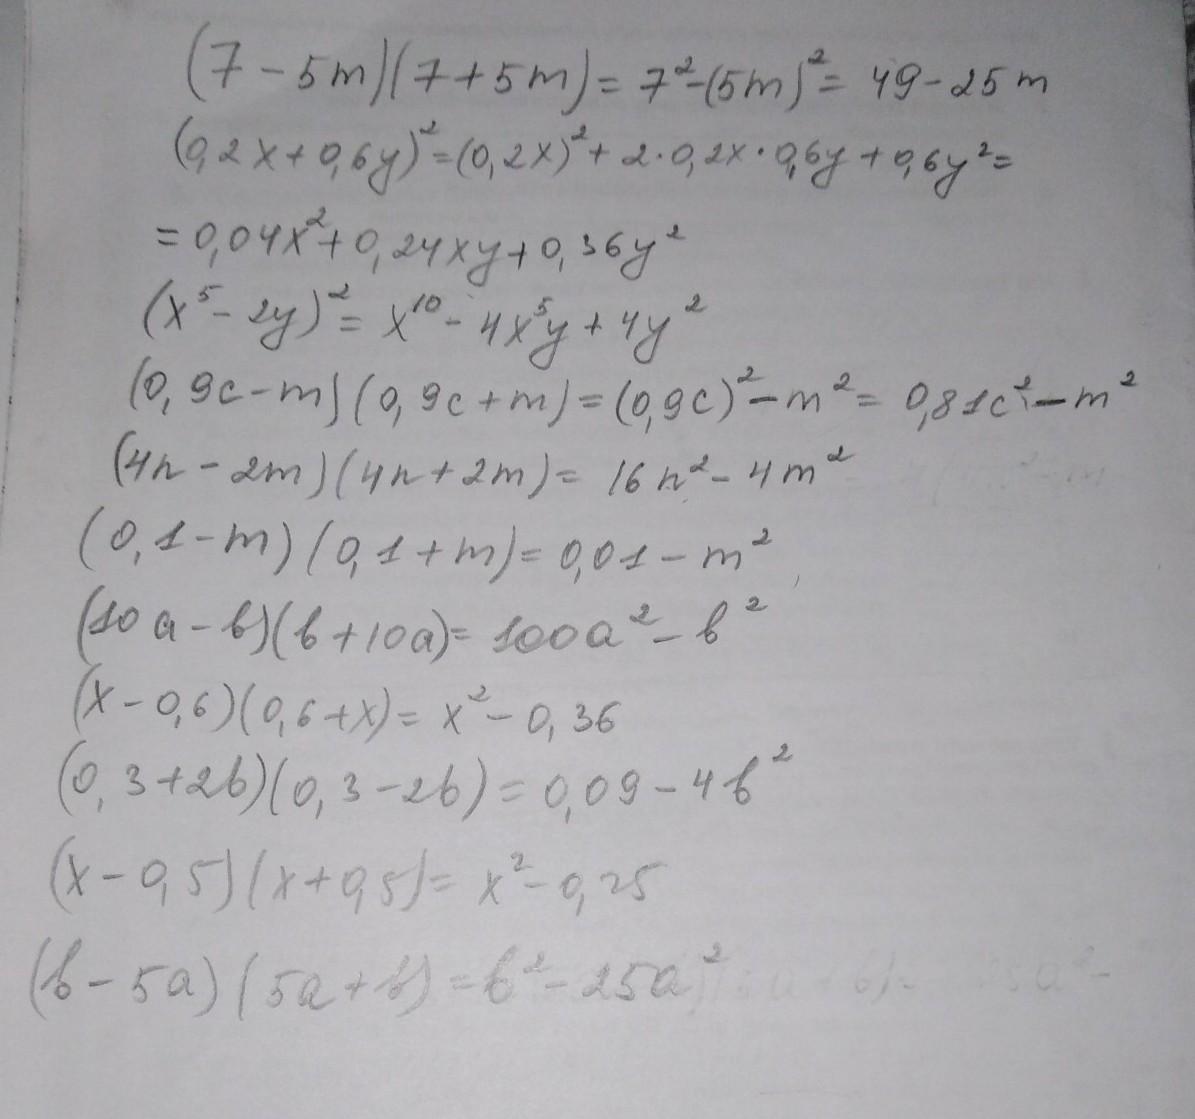 (7 - 5m)(7 + 5m) = 7² - (5m)² = 49 - 25m
(0,2x + 0,6y)² = (0,2x)² + 2·0,2x·0,6y + 0,6y² =
= 0,04x² + 0,24xy + 0,36y²
(x⁵ - 2y)² = x¹⁰ - 4x⁵y + 4y²
(0,9c - m)(0,9c + m) = (0,9c)² - m² = 0,81c² - m²
(4n - 2m)(4n + 2m) = 16n² - 4m²
(0,1 - m)(0,1 + m) = 0,01 - m²
(10a - b)(b + 10a) = 100a² - b²
(x - 0,6)(0,6 + x) = x² - 0,36
(0,3 + 2b)(0,3 - 2b) = 0,09 - 4b²
(x - 0,5)(x + 0,5) = x² - 0,25
(b - 5a)(5a + b) = b² - 25a²